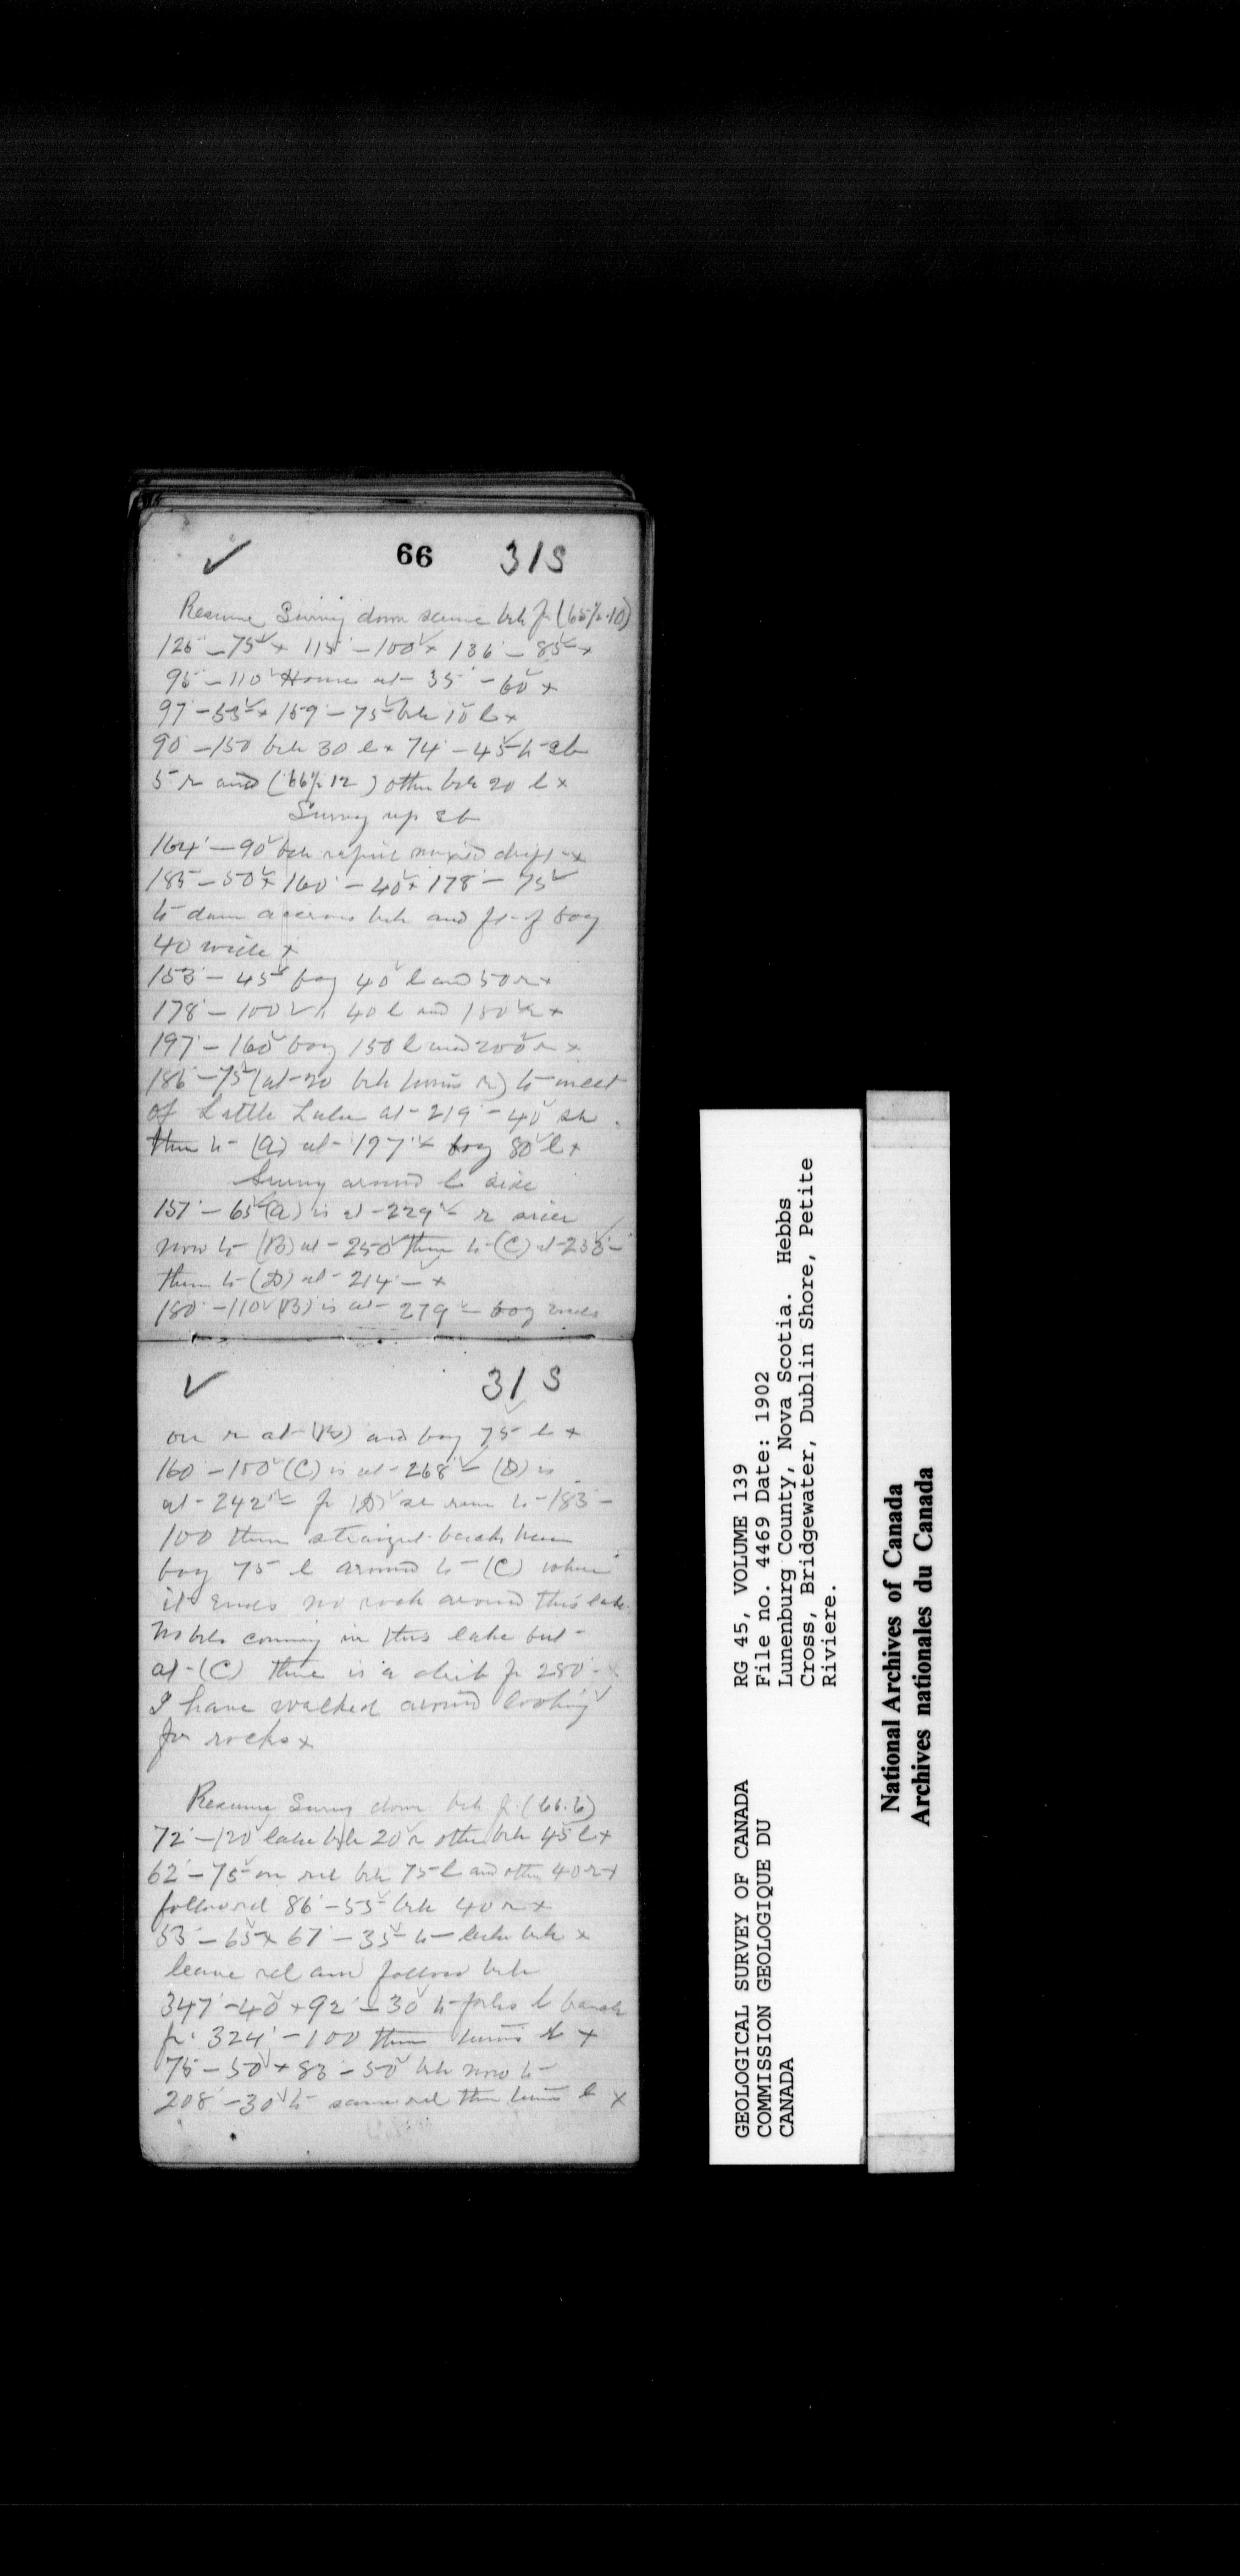 ✓ 66 31S
Resume Survey down same brk fr (65½.10)
125° – 75 x 115° – 100 x 136° – 85 x
95° – 110 House at 35° – 60 x
97° – 55 x 159° – 75 brk 10 l x
90° – 150 brk 30 l x 74° – 45 to sb
5 r and (66½.12) other brk 20 l x
Survey up sb
164° – 90 brk rapid mixed drift x
185° – 50 x 160° – 40 x 178° – 75
to dam across brk and ft of bog
40 wide x
153° – 45 bog 40 l and 50 r x
178° – 100 40 l and 150 r x
197° – 160 bog 150 l and 200 r x
186° – 75 (at 20 brk turns r) to
of Little Lake at 219° – 40 sh
then to (A) at 197° – bog 80 l x
Survey around l side
157° – 65 (A) is at 229° – r side
now to (B) at 250° then to (C) at 233° –
then to (D) at 214° – x
180° – 110 (B) is at 279° – bog ends
✓ 31 S
on r at (B) and bog 75 l x
160° – 150 (C) is at 268° – (D) is
at 242° – fr (D) sh runs to 183° –
100 then straight back here
bog 75 l around to (C) where
it ends no rock around this lake.
No brks coming in this lake but
at (C) there is a fr 280° –
I have walked around looking
for rocks x
Resume Survey down brk fr (66.6)
72° – 120 lake brk 20 r other brk 45 l x
62° – 75 on rd brk 75 l and other 40 r x
follow rd 86° – 55 brk 40 r x
53° – 65 x 67° – 35 to lake brk x
leave rd and follow brk
347° – 40 x 92° – 30 to forks l branch
fr 324° – 100 then turns x
75° – 50 x 83° – 50 brk now to
208° – 30 to same rd then turns l x
RG 45, VOLUME 139
File no. 4469 Date: 1902
Lunenburg County, Nova Scotia. Hebbs
Cross, Bridgewater, Dublin Shore, Petite
Riviere.
GEOLOGICAL SURVEY OF CANADA
COMMISSION GEOLOGIQUE DU
CANADA
National Archives of Canada
Archives nationales du Canada